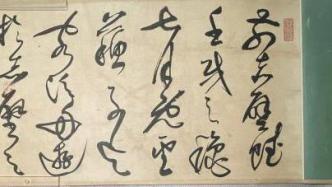 前赤壁賦
壬戌之秋
七月既望
蘇子与
客泛舟遊
於赤壁之